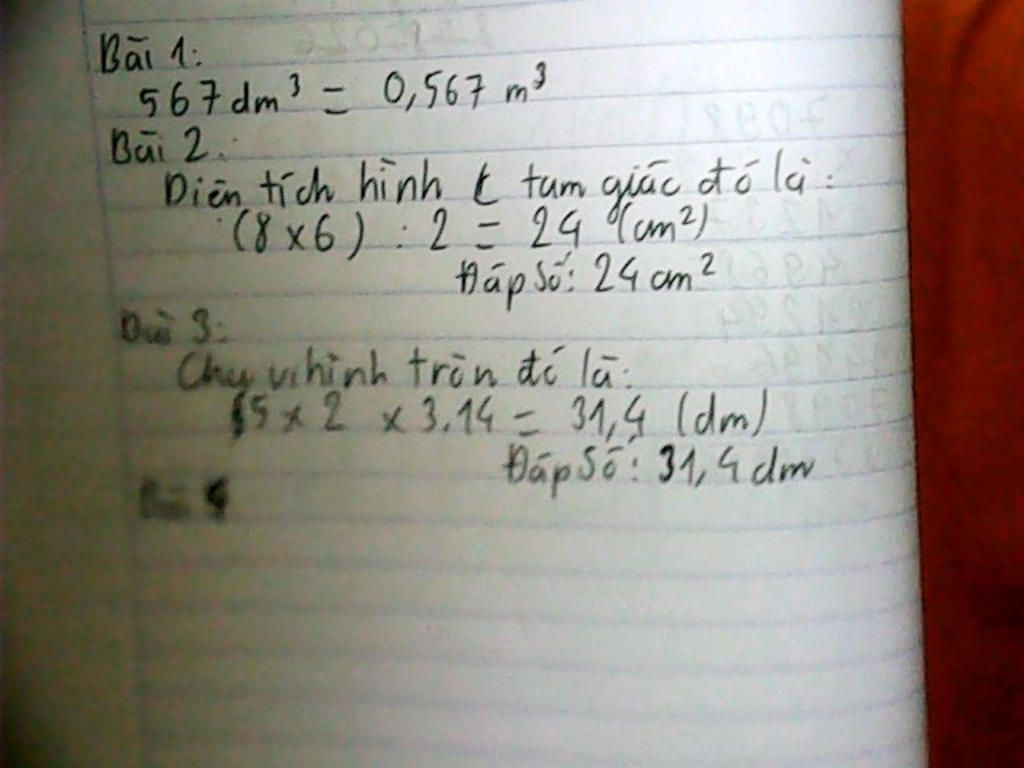 Bài 1:
567 dm³ = 0,567 m³
Bài 2:
Diện tích hình tam giác đó là:
(8 x 6) : 2 = 24 (cm²)
Đáp Số: 24 cm²
Bài 3:
Chu vi hình tròn đó là:
5 x 2 x 3.14 = 31,4 (dm)
Đáp Số: 31,4 dm
Bài 4